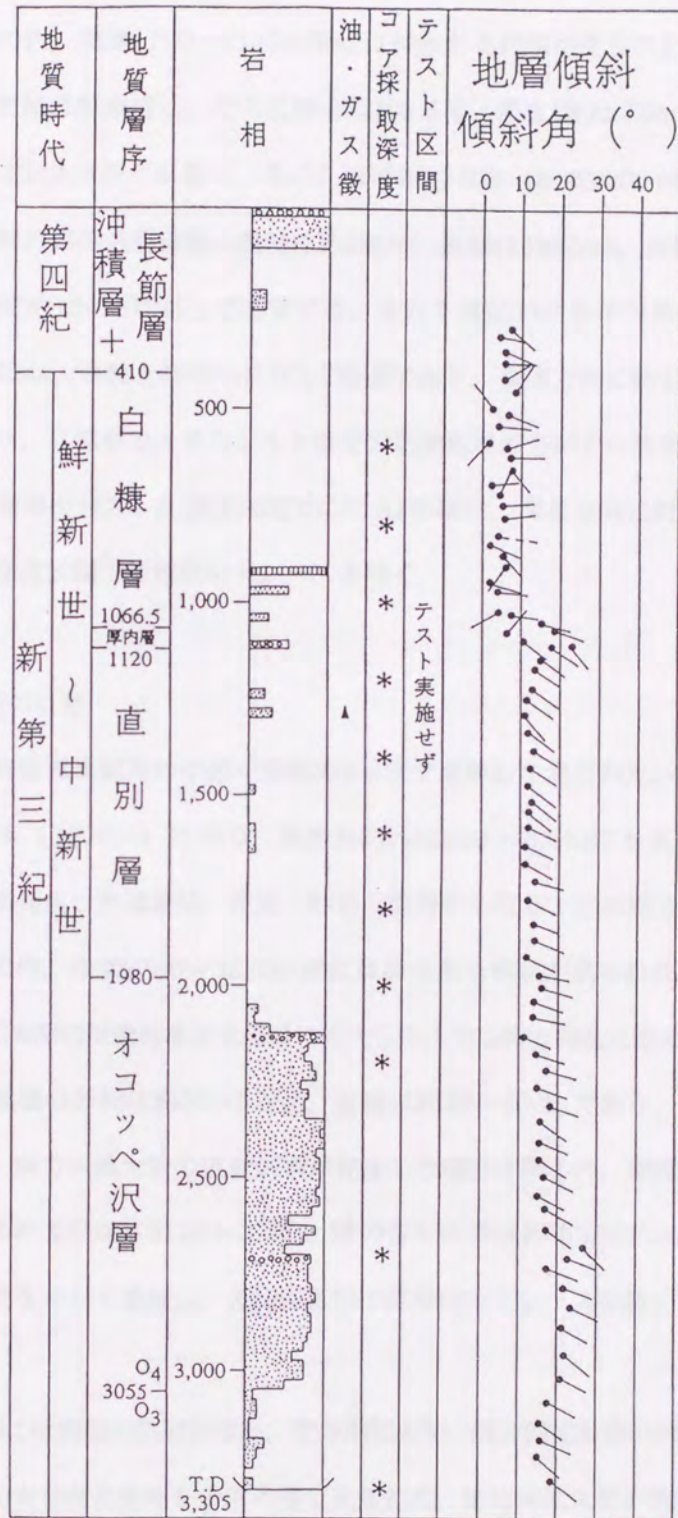 地質時代
地質層序
岩相
油・ガス徴
コア採取深度
テスト区間
地層傾斜
傾斜角（ ）
0 10 20 30 40
第四紀
新第三紀
鮮新世～中新世
沖積層＋
長節層
410
白糠層
1066.5
厚内層
1120
直別層
1980
オコッペ沢層
O4
3055
O3
T.D
3,305
500
1,000
1,500
2,000
2,500
3,000
テスト実施せず